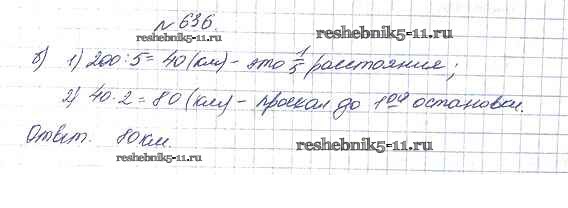 № 636.
reshebnik5-11.ru reshebnik5-11.ru
б) 1) 200:5=40 (км) - это 1/5 расстояния;
2) 40·2=80 (км) - проехал до 1ой остановки.
Ответ. 80 км.
reshebnik5-11.ru reshebnik5-11.ru